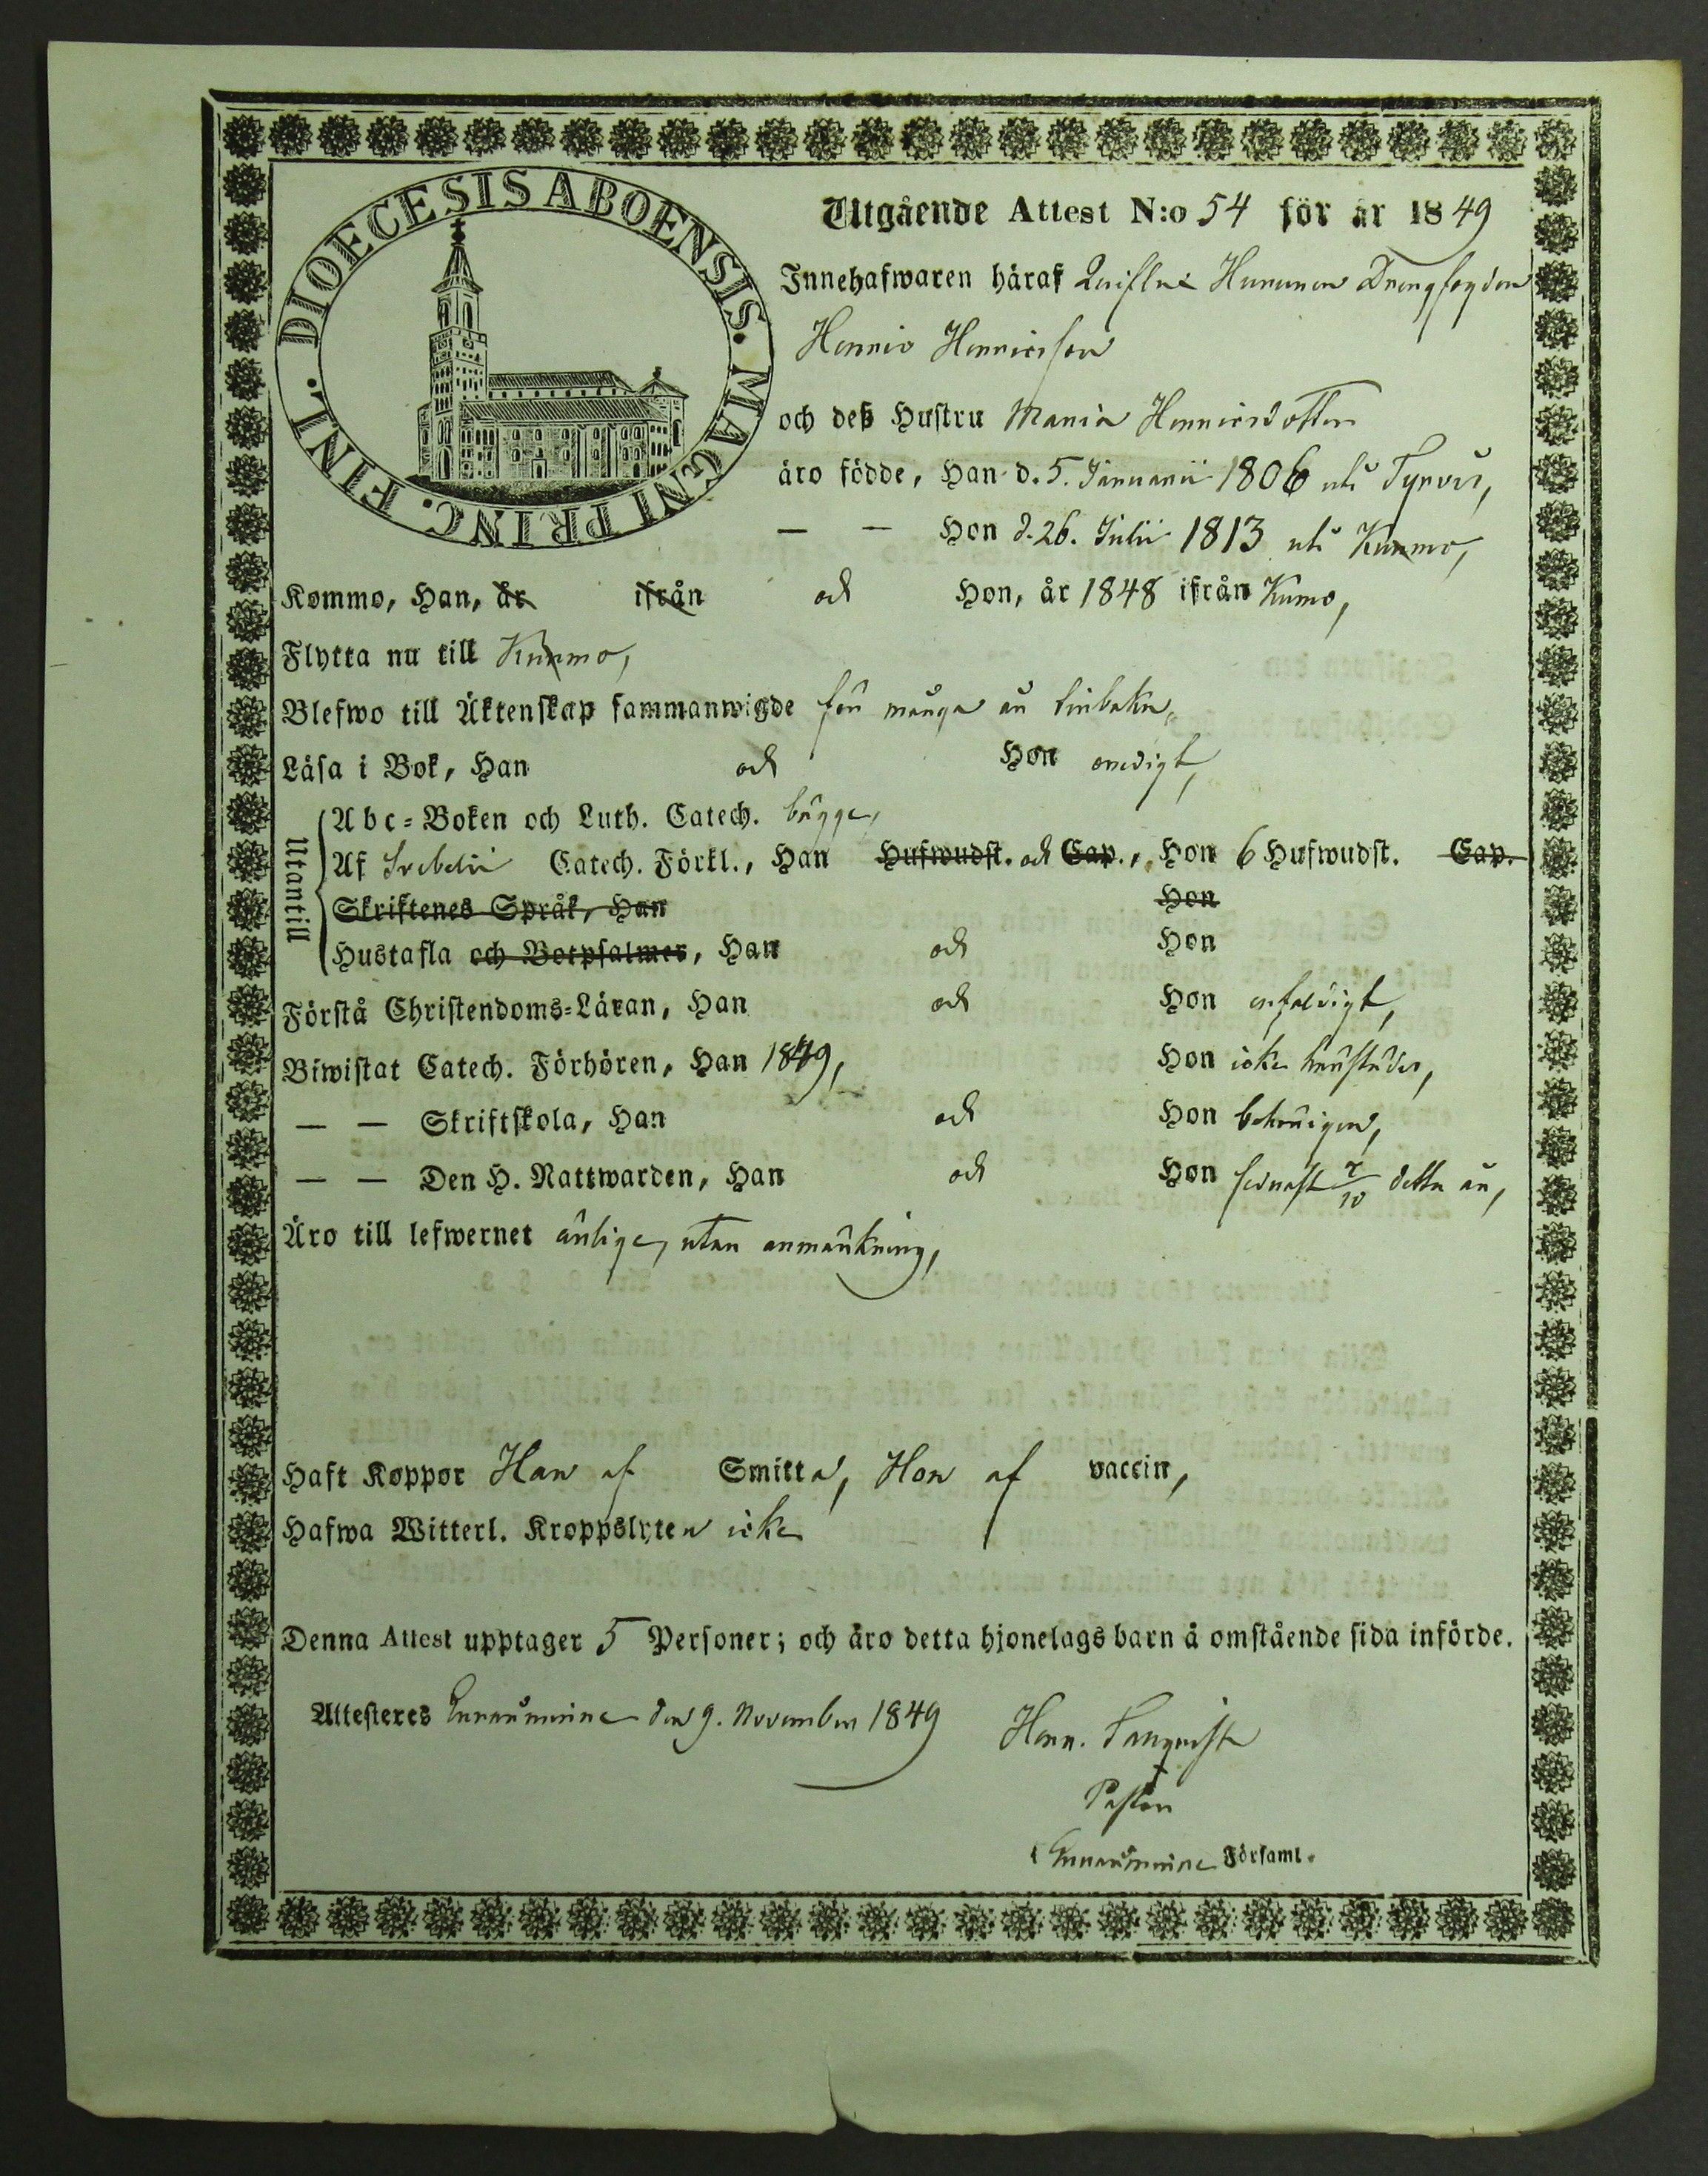 DIOECESIS ABOENSIS. MAGNI PRINC. FINL.
Utgående Attest N:o 54 för år 1849
Innehafwaren häraf Hurunen Drengfogden
Henric Henricsson
och deß Hustru Maria Henricsdotter
äro födde, Han d. 5. Januarii 1806 uti Tyrvis,
— — Hon d. 26. Julii 1813 uti Kummo,
Kommo, Han, är ifrån och Hon, år 1848 ifrån Kumo,
Flytta nu till Kummo,
Blefwo till Äktenskap sammanwigde för många år tillbaka,
Läsa i Bok, Han och Hon ordigt,
Utantill
Abc-Boken och Luth. Catech. bägge,
Af Svebelii Catech. Förkl., Han Hufwudst. och Cap., Hon 6 Hufwudst. Cap.
Skriftenes Språk, Han Hon
Hustafla och Botpsalmer, Han och Hon
Förstå Christendoms-Läran, Han och Hon enfaldigt,
Biwistat Catech. Förhören, Han 1849, Hon icke härstädes,
— — Skriftskola, Han och Hon behörigen,
— — Den H. Nattwarden, Han och Hon sednast 7/10 detta år,
Äro till lefwernet ärlige, utan anmärkning,
Haft Koppor Han af Smitta, Hon af vaccin,
Hafwa Witterl. Kroppslyten icke
Denna Attest upptager 5 Personer; och äro detta hjonelags barn å omstående sida införde.
Attesteres Euraåminne den 9. November 1849
Henr.
Pastor
i Euraåminne Församl.